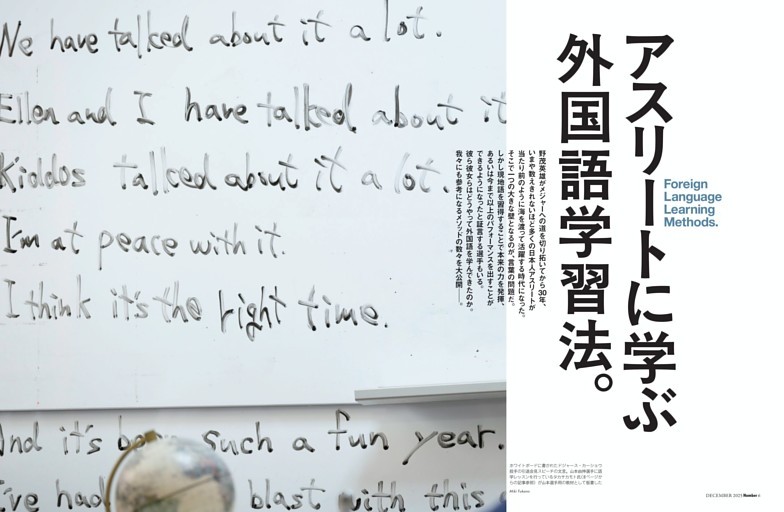 We have talked about it a lot.
Ellen and I have talked about it
Kiddos talked about it a lot.
I'm at peace with it.
I think it's the right time.
And it's been such a fun year.
I've had blast with this
アスリートに学ぶ
外国語学習法。
Foreign
Language
Learning
Methods.
野茂英雄がメジャーへの道を切り拓いてから30年、
いまや数えきれないほど多くの日本人アスリートが
当たり前のように海を渡って活躍する時代になった。
そこで一つの大きな壁となるのが、言葉の問題だ。
しかし現地語を習得することで本来の力を発揮、
あるいは今まで以上のパフォーマンスを出すことが
できるようになったと証言する選手もいる。
彼ら彼女らはどうやって外国語を学んできたのか。
我々にも参考になるメソッドの数々を大公開——。
ホワイトボードに書かれたドジャース・カーショウ
投手の引退会見スピーチの文言。山本由伸選手に語
学レッスンを行っている
DECEMBER 2025 Number 6